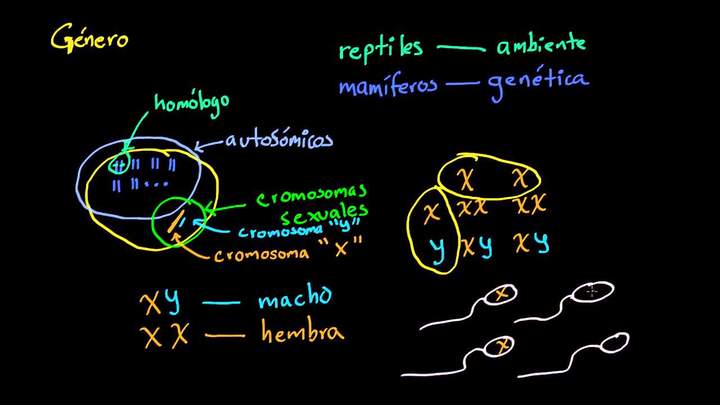 Género
reptiles — ambiente
mamíferos — genética
homólogo
autosómicos
cromosomas
sexuales
cromosoma "y"
cromosoma "x"
x x
x xx xx
y xy xy
xy — macho
xx — hembra
x
x